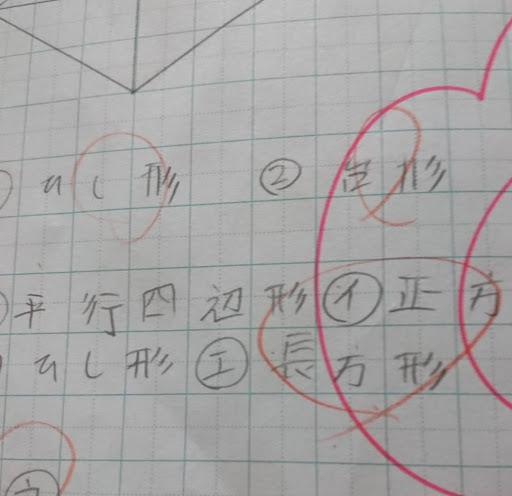 ひし形 ② 台形
平行四辺形 ㋑ 正方
ひし形 ㋓ 長方形